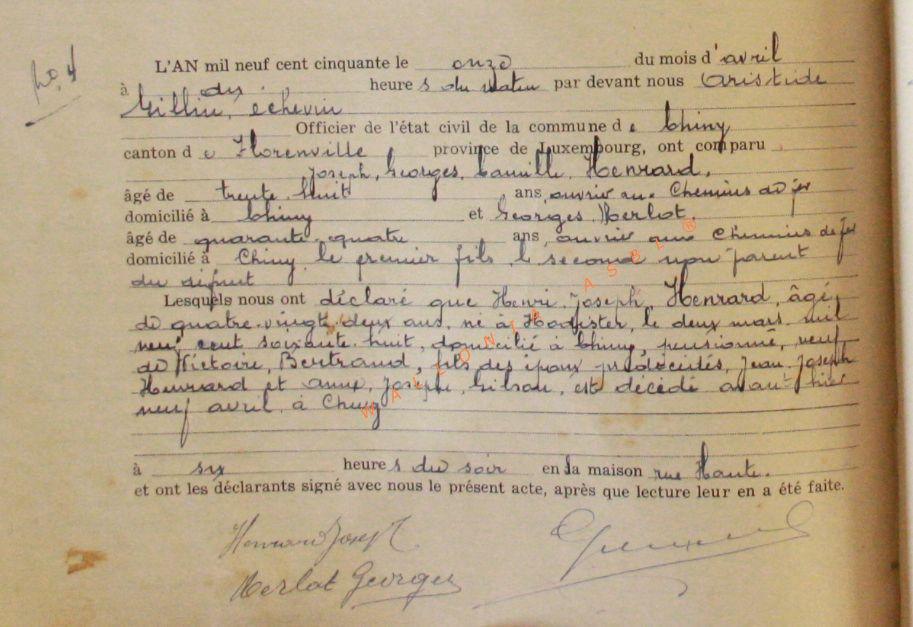 No. 4
L'AN mil neuf cent cinquante le onze du mois d'avril
à dix heure s du Matin par devant nous Aristide
Gillin, echevin
Officier de l'état civil de la commune d e Chiny
canton d e Florenville province de Luxembourg, ont comparu
Joseph, Georges, Camille, Henrard,
âgé de trente huit ans, ouvrier aux Chemins de fer
domicilié à Chiny et Georges, Merlot,
âgé de quarante quatre ans, ouvrier aux Chemins de fer
domicilié à Chiny, le premier fils, le second non parent
du défunt
Lesquels nous ont déclaré que Henri, Joseph, Henrard, âgé,
de quatre-vingt, deux ans, né à Hodister, le deux mars mil
neuf cent soixante huit, domicilié à Chiny, pensionné, veuf
de Victoire, Bertrand, fils des époux prédécédés, Jean, Joseph
Henrard et Anne, Joseph, Gilson, est décédé avant hier
neuf avril, à Chiny
à six heure s du soir en la maison rue Haute.
et ont les déclarants signé avec nous le présent acte, après que lecture leur en a été faite.
Henrard Joseph
Merlot Georges
WALLONIA ASBL ®